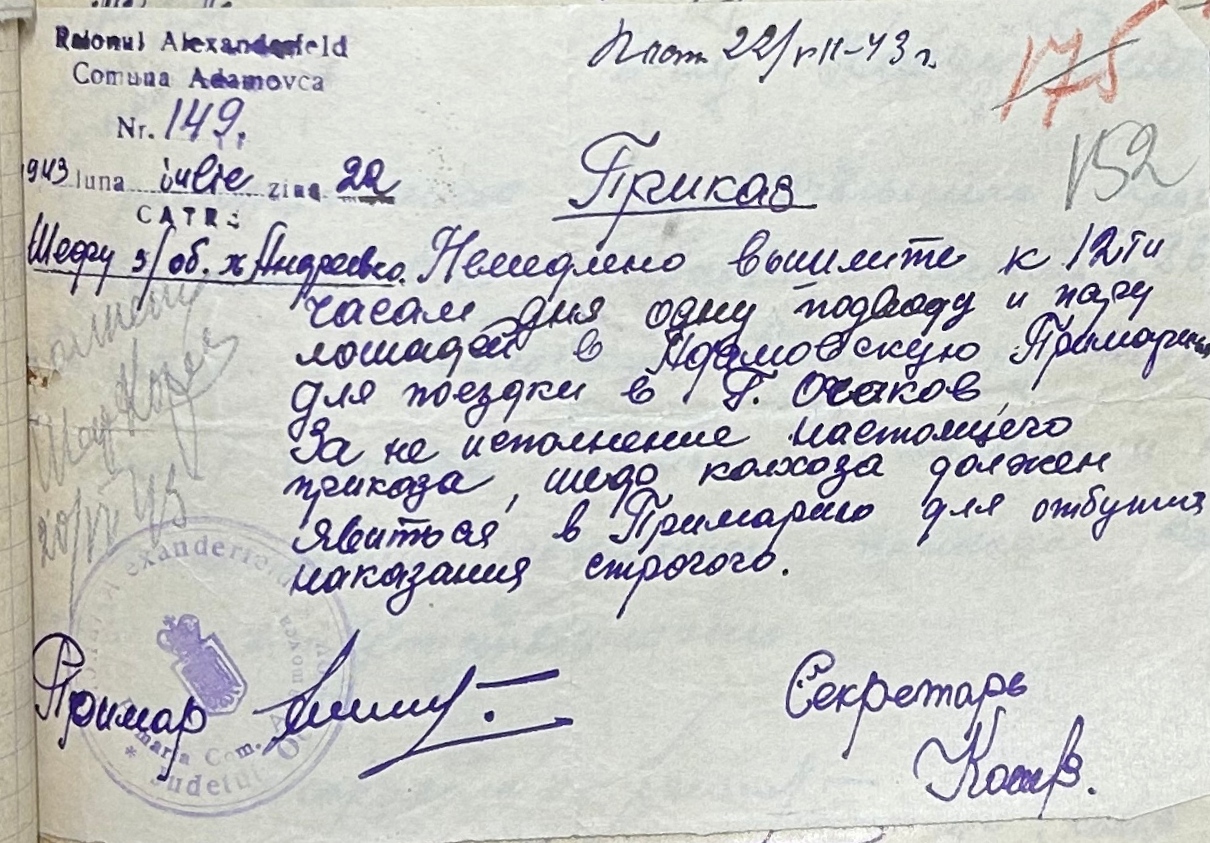 Raionul Alexanderfeld
Comuna Adamovca
Nr. 149.
1943 luna iulie ziua 22
CATRE
22/VII-43 г.
175
152
Приказ
Шефу з/об. х Андреевка. Немедлено вышлите к 12ти
часам дня одну подводу и пару
лошадей в Адамовскую Примарию
для поездки в г. Очаков
За не исполнение настоящего
приказа, шеф колхоза должен
явиться в Примарию для отбытия
наказания строгого.
20/VII 43
Примар
Секретарь
Alexanderfeld
Primaria Com.
Judetul